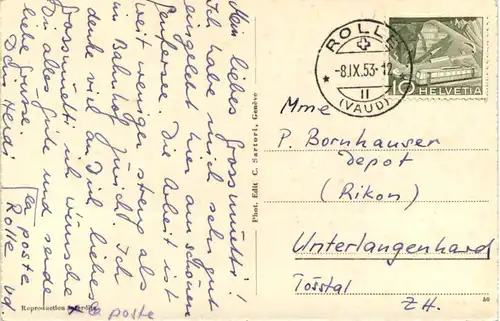 Mein liebes Grossmuetti!
Ich habe mich sehr gut
eingelebt hier am schönen
Genfersee. Die Arbeit ist
weit weniger streng als
im Bahnhof Zürich. Ich
denke viel an Dich liebes
Grossmuetti. Ich wünsche
Dir alles Gute und sende
liebe Grüsse.
Dein Heidi
la poste
Rolle vd
la poste
Reproduction interdite
Phot. Edit C. Sartori, Genève
ROLLE
-8.IX.53-12
II
(VAUD)
10 HELVETIA
Mme
P. Bornhauser
Depot
(Rikon)
Unterlangenhard
Tösstal
ZH.